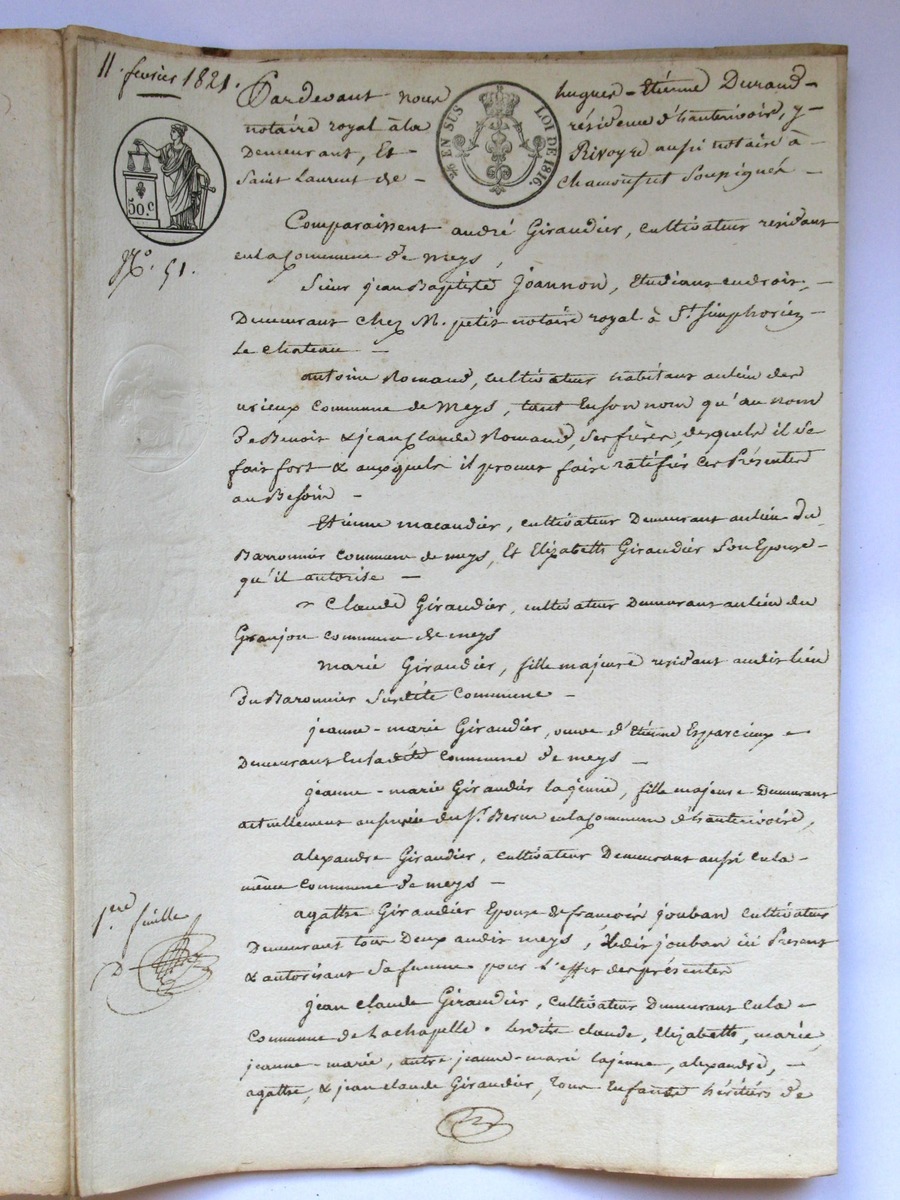 11. fevrier 1821.
Pardevant nous hugues-Etiénne Durand-
notaire royal à la résidence d'hauterivoire, y-
Demeurant, Et Rivoyre aussi notaire à
Saint Laurent de - chamousset soussignés -
¼ EN SUS LOI DE 1816.
50. C
N.º 51.
Comparaissent andré Giraudier, cultivateur residant
en la Commune de meys,
Sieur jean Baptisté Joannon, Etudiant en droit, -
Demeurant chez M. petit notaire royal à St. Simphorien
Le chateau -
antoine Romand, cultivateur habitant au lieu des
commune de Meys, tant en son nom qu'au nom
De Benoit & jean Claude Romand, ses frères, desquels il se
fait fort & auxquels il promet faire ratifier ces Présentes
au Besoin -
Etienne macaudier, cultivateur Demeurant au lieu du
Barronnier commune de meys, Et Elizabeth Giraudier son Epouse -
qu'il autorise -
Claude Giraudier, cultivateur Demeurant au lieu du
Granjon commune de meys
marie Giraudier, fille majeure residant audit lieu
Du Baronnier susdité Commune -
jeanne-marie Giraudier, veuve d'Etiénne Esparcieux -
Demeurant en ladité commune de meys -
jeanne-marie Giraudier la jeune, fille majeure Demeurant
actuellement au service du Sr. Berne en la Commune d'hauterivoire,
alexandre Giraudier, cultivateur Demeurant aussi en la -
même commune de meys -
agathe Giraudier Epouse de françois jouban cultivateur
Demeurant tous Deux audit meys, ledit jouban ici Present
& autorisant sa femme pour l'effet des présentes
jean claude Giraudier, cultivateur Demeurant en la -
Commune de Lachapelle. Lesdits claude, Elizabeth, marie,
jeanne-marie, autre jeanne-marie la jeune, alexandre, -
agathe, & jean claude Giraudier, tous Enfants héritiers de
1ere feuille